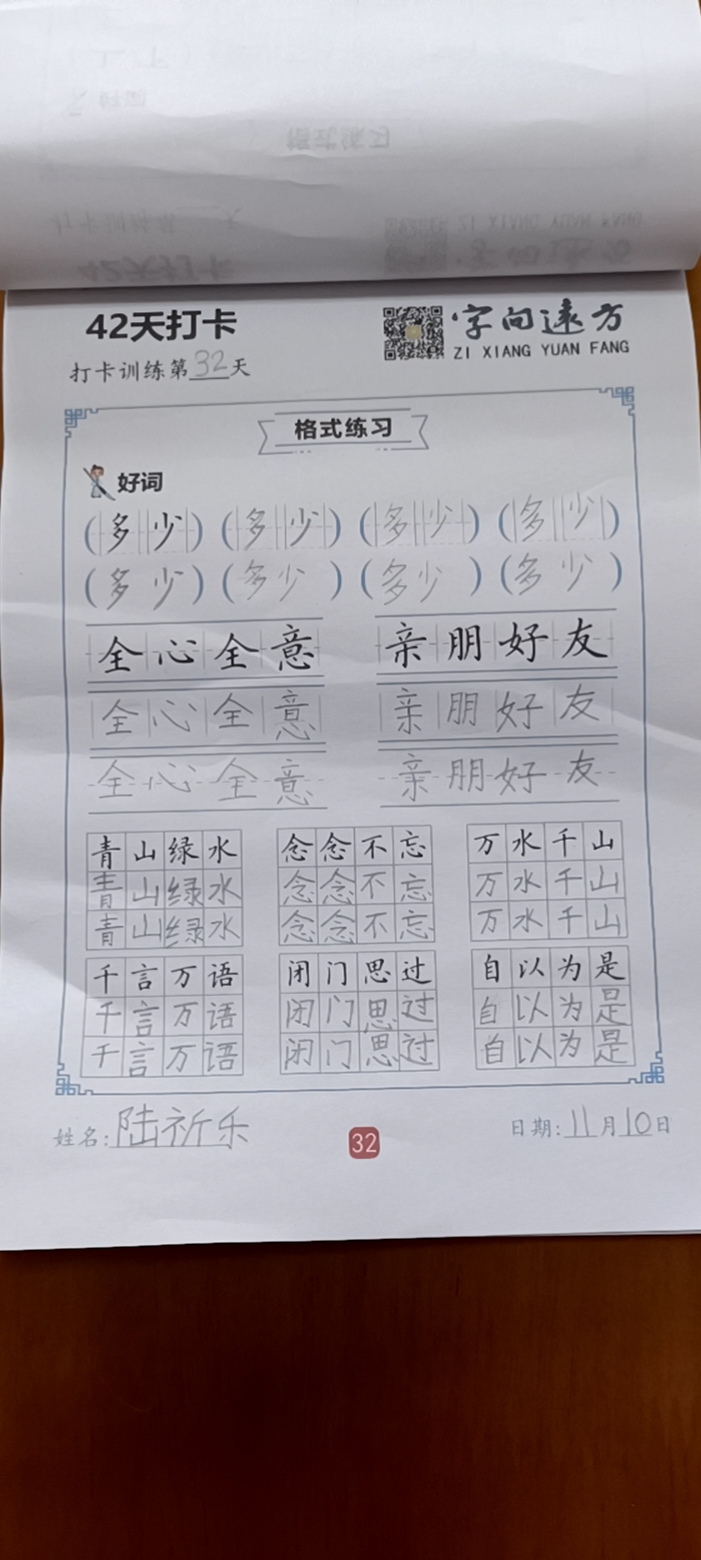 格式练习
42天打卡
字向远方
打卡训练第32天
ZI XIANG YUAN FANG
格式练习
好词
(多少) (多少) (多少) (多少)
(多少) (多少) (多少) (多少)
全心全意 亲朋好友
全心全意 亲朋好友
全心全意 亲朋好友
青山绿水 念念不忘 万水千山
青山绿水 念念不忘 万水千山
青山绿水 念念不忘 万水千山
千言万语 闭门思过 自以为是
千言万语 闭门思过 自以为是
千言万语 闭门思过 自以为是
姓名:陆祈乐 32 日期:11月10日